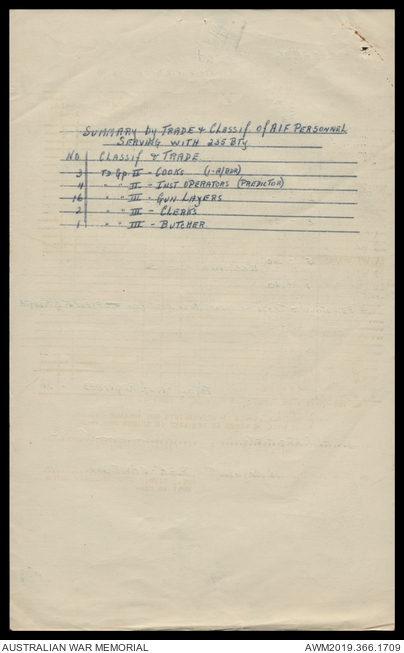 SUMMARY by TRADE & CLASSIF of AIF PERSONNEL
SERVING WITH 235 Bty
NO CLASSIF & TRADE
3 TD Gp II - COOKS (1-A/BDR)
4 " " II - INST OPERATORS (PREDICTOR)
16 " " III - GUN LAYERS
2 " " III - CLERKS
1 " " III - BUTCHER
AUSTRALIAN WAR MEMORIAL AWM2019.366.1709